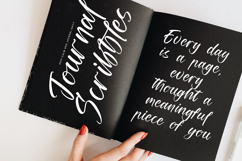 Journal
Scribbles
Every day
is a page,
every
thought a
meaningful
piece of you